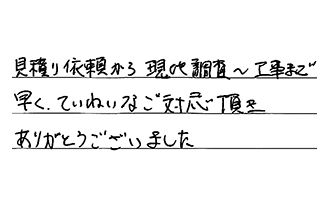 見積り依頼から 現地調査～工事まで
早く、ていねいなご対応頂き
ありがとうございました